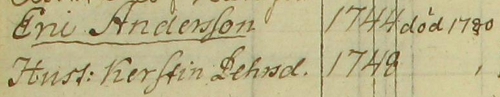 Eric Andersson 1744 död 1780
Hust: Kerstin Pehrsd. 1748